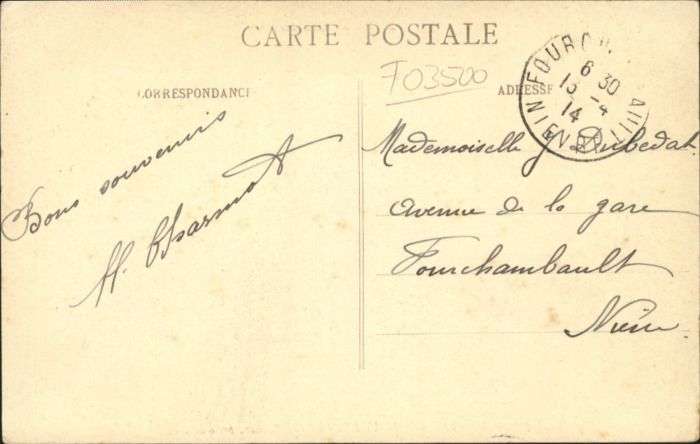 CARTE POSTALE
F03500
CORRESPONDANCE
ADRESSE
6 30
13 - 4
14
Bons souvenirs
Mademoiselle J. Dubedat
Avenue de la gare
Fourchambault
Nièvre